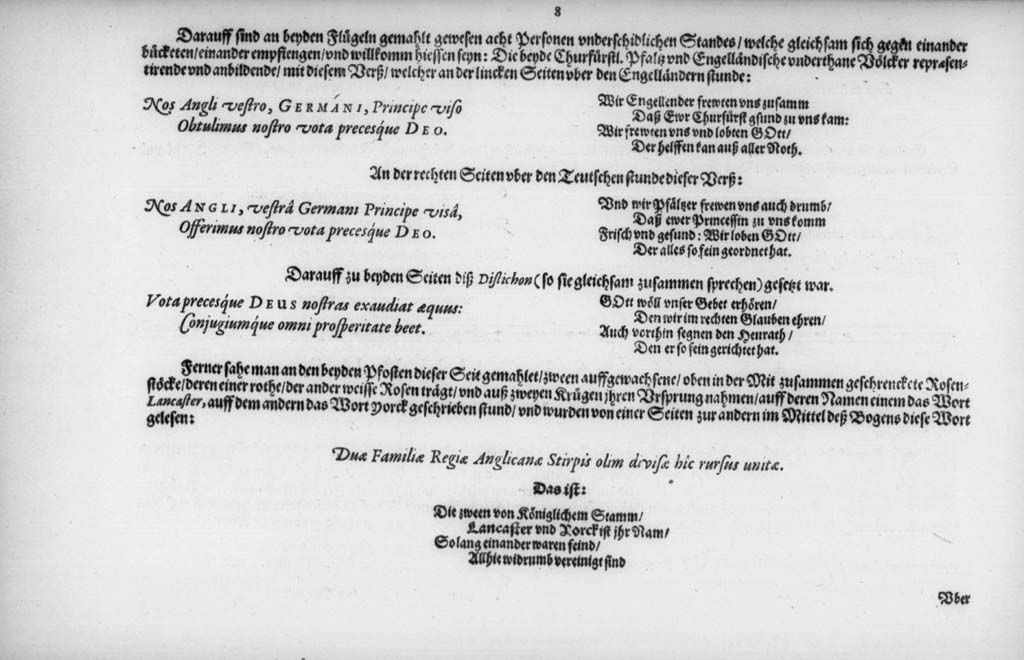 8
Darauff sind an beyden Flügeln gemahlt gewesen acht Personen vnderschidlichen Standes/ welche gleichsam sich gegen einander
bücketen/ einander empfiengen/ vnd willkomm hiessen seyn: Die beyde Churfürstl. Pfaltz vnd Engelländische vnderthane Völcker repræsen-
tirende vnd anbildende/ mit diesem Verß/ welcher an der lincken Seiten vber den Engelländern stunde:
Nos Angli vestro, GERMÁNI, Principe viso
Obtulimus nostro vota precesq́ue DEO.
Wir Engellender frewten vns zusamm
Daß Ewr Churfürst gsund zu vns kam:
Wir frewten vns vnd lobten GOtt/
Der helffen kan auß aller Noth.
An der rechten Seiten vber den Teutschen stunde dieser Verß:
Nos ANGLI, vestrâ Germani Principe visâ,
Offerimus nostro vota precesq́ue DEO.
Vnd wir Pfältzer frewen vns auch drumb/
Daß ewer Princessin zu vns komm
Frisch vnd gesund: Wir loben GOtt/
Der alles so fein geordnet hat.
Darauff zu beyden Seiten diß Distichon (so sie gleichsam zusammen sprechen) gesetzt war.
Vota precesq́ue DEUS nostras exaudiat æquus:
Conjugiumq́ue omni prosperitate beet.
GOtt wöll vnser Gebet erhören/
Den wir im rechten Glauben ehren/
Auch vorthin segnen den Heurath/
Den er so fein gerichtet hat.
Ferner sahe man an den beyden Pfosten dieser Seit gemahlet/ zween auffgewachsene/ oben in der Mit zusammen geschrenckete Rosen-
stöcke/ deren einer rothe/ der ander weisse Rosen trägt/ vnd auß zweyen Krügen jhren Vrsprung nahmen/ auff deren Namen einem das Wort
Lancaster, auff dem andern das Wort Yorck geschrieben stund/ vnd wurden von einer Seiten zur andern im Mittel deß Bogens diese Wort
gelesen:
Duæ Familiæ Regiæ Anglicanæ Stirpis olim divisæ hîc rursus unitæ.
Das ist:
Die zween von Königlichem Stamm/
Lancaster vnd Yorck ist jhr Nam/
So lang einander waren feind/
Allhie widrumb vereinigt sind
Vber